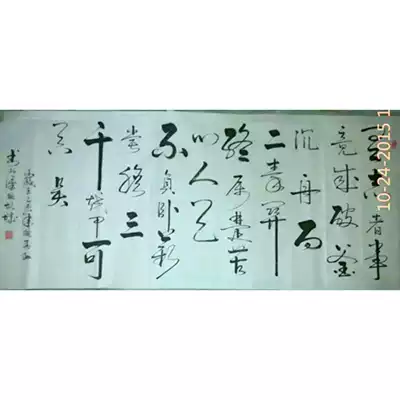 有志者事
竟成破釜
沉舟百
二秦关
終属楚苦
心人天
不負卧薪
尝胆三
千越甲可
吞吴
10-24-2015 1